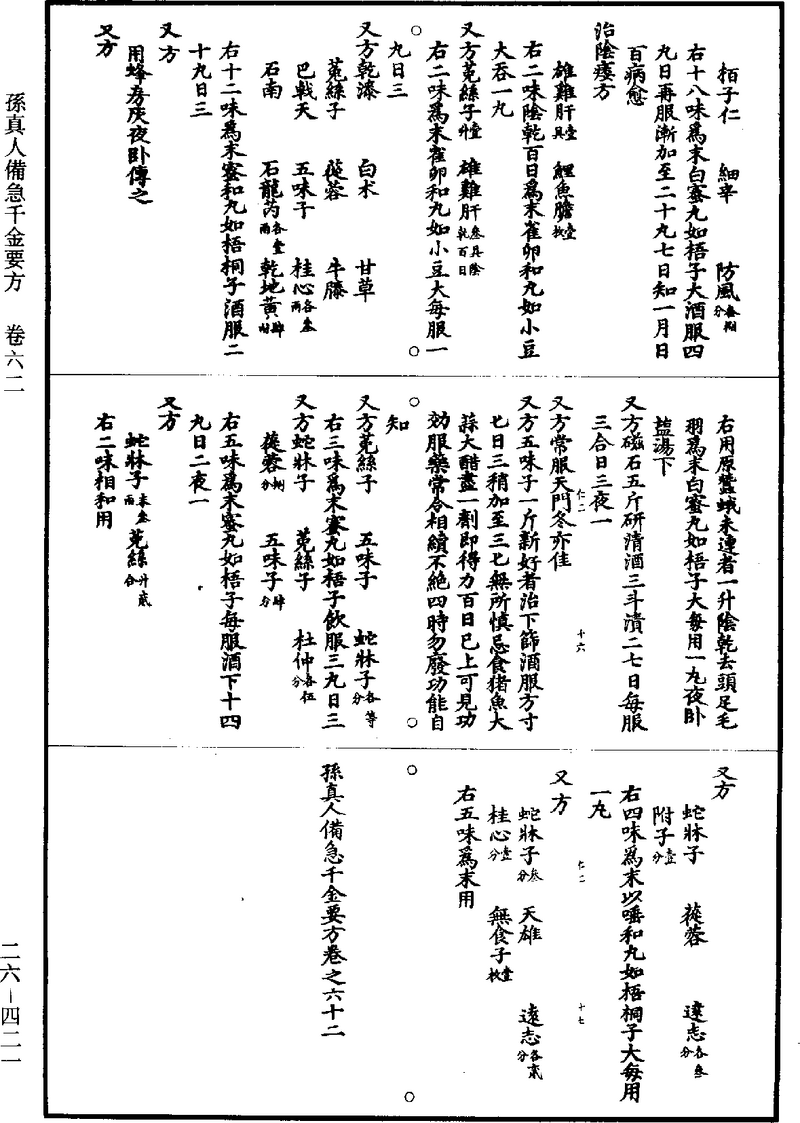 孫真人備急千金要方　卷六二
栢子仁　細辛　防風各捌分
右十八味爲末白蜜丸如梧子大酒服四
丸日再服漸加至二十丸七日知一月日
百病愈
治陰痿方
雄雞肝壹具　鯉魚膽壹枚
右二味陰乾百日爲末雀卵和丸如小豆
大吞一丸
又方菟絲子壹升　雄雞肝叁具陰乾百日
右二味爲末雀卵和丸如小豆大每服一
丸日三
又方乾漆　白术　甘草
菟絲子　蓯蓉　牛膝
巴戟天　五味子　桂心各叁兩
石南　石龍芮各壹兩　乾地黃肆兩
右十二味爲末蜜和丸如梧桐子酒服二
十丸日三
又方
用蜂房灰夜卧傅之
又方
右用原蠶蛾未連者一升陰乾去頭足毛
羽爲末白蜜丸如梧子大每用一丸夜卧
盐湯下
又方磁石五斤研清酒三斗漬二七日每服
三合日三夜一
仁二　十六
又方常服天門冬亦佳
又方五味子一斤新好者治下篩酒服方寸
匕日三稍加至三匕無所慎忌食猪魚大
蒜大醋盡一劑即得力百日已上可見功
効服藥常令相續不絕四時勿廢功能自
知
又方菟絲子　五味子　蛇牀子各等分
右三味爲末蜜丸如梧子飲服三丸日三
又方蛇牀子　菟絲子　杜仲各伍分
蓯蓉捌分　五味子肆分
右五味爲末蜜丸如梧子每服酒下十四
丸日二夜一
又方
蛇牀子末叁兩　菟絲汁貳合
右二味相和用
又方
蛇牀子　蓯蓉　遠志各叁分
附子壹分
右四味爲末以唾和丸如梧桐子大每用
一丸
仁二　十七
又方
蛇牀子叁分　天雄　遠志各貳分
桂心壹分　無食子壹枚
右五味爲末用
孫真人備急千金要方卷之六十二
二六－四二一